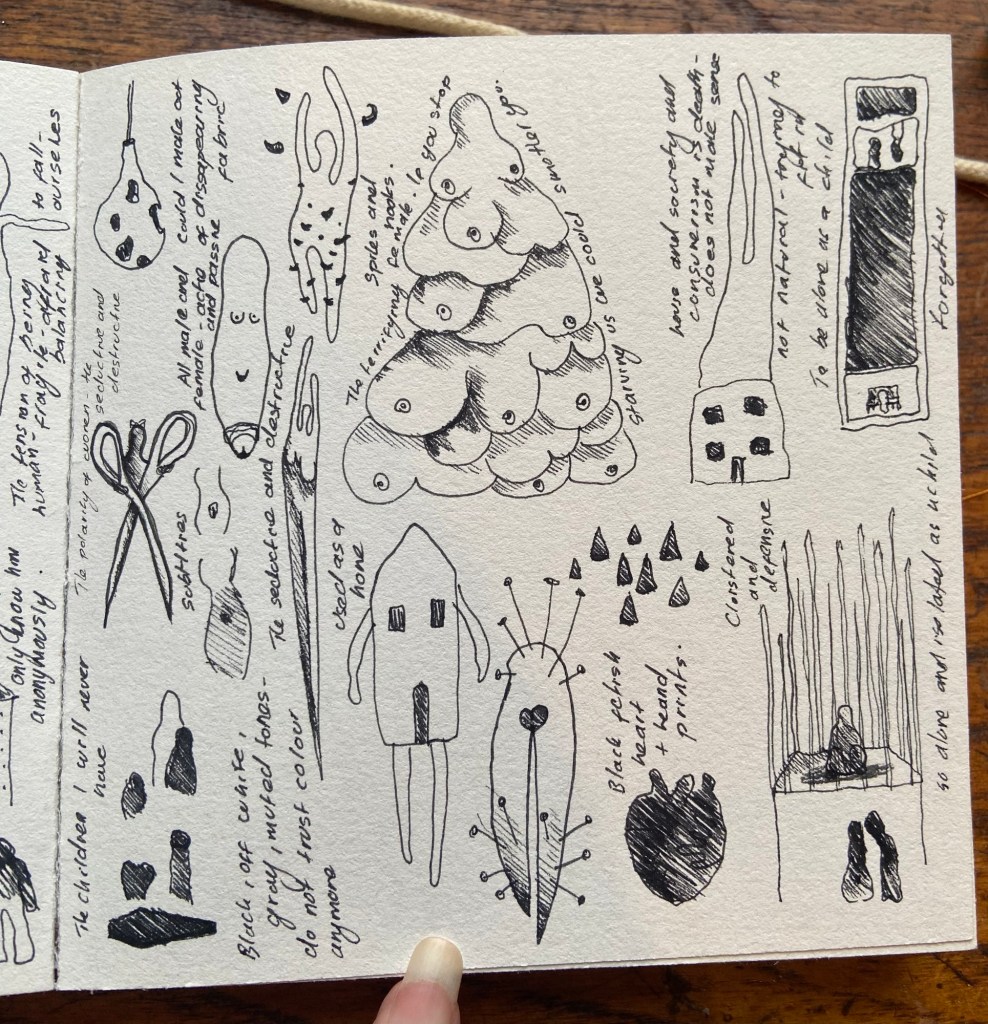 to fall-
ourselves
The tension of being
human - fragile -
balancing
only know him
anonymously.
The children I will never
have
The polarity of women - the
seductive and
destructive
All male and
female - acts
and passive
could I make out
of disappearing
fabric
subtitles
The seductive and destructive
Black, off white,
gray, muted tones -
do not trust colour
anymore
Used as a
home
Spikes and
hooks.
The terrifying female. If you stop
starving us we could smother you.
Black fetish
heart
+ hand
prints.
house and society and
consumerism is death -
does not make sense
not natural - trying to
fit in
To be alone as a child
Clustered
and
defensive
Forgotten
so alone and isolated as a child